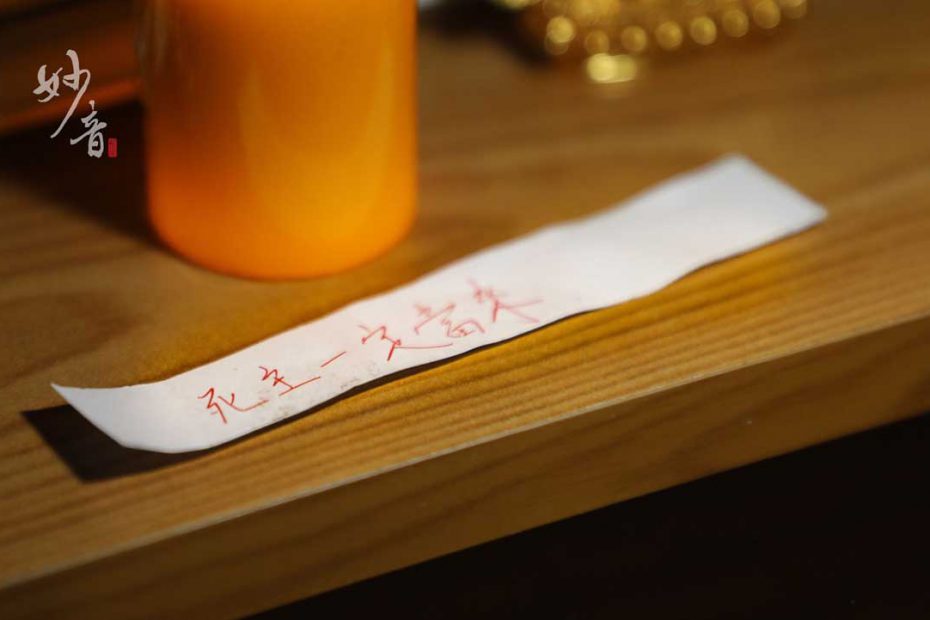 妙音
死主一定當來